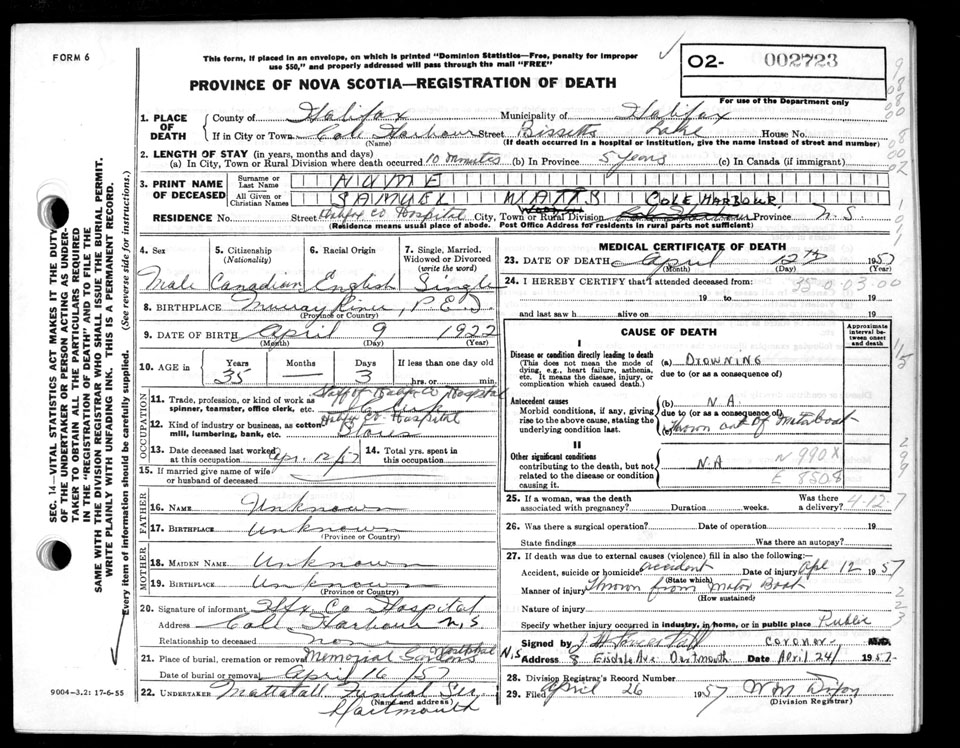 FORM 6
This form, if placed in an envelope, on which is printed "Dominion Statistics—Free, penalty for improper
use $50," and properly addressed will pass through the mail "FREE"
PROVINCE OF NOVA SCOTIA—REGISTRATION OF DEATH
O2- 002723
For use of the Department only
1. PLACE OF DEATH
County of Halifax Municipality of Halifax
If in City or Town Cole Harbour Street Bissetts Lake House No.
(Name) (If death occurred in a hospital or institution, give the name instead of street and number)
2. LENGTH OF STAY (in years, months and days)
(a) In City, Town or Rural Division where death occurred 10 minutes (b) In Province 5 years (c) In Canada (if immigrant)
3. PRINT NAME OF DECEASED
Surname or Last Name HUME
All Given or Christian Names SAMUEL WATTS
COLE HARBOUR
RESIDENCE No. Street Halifax Co Hospital City, Town or Rural Division Cole Harbour Province N.S
(Residence means usual place of abode. Post Office Address for residents in rural parts not sufficient)
4. Sex Male
5. Citizenship (Nationality) Canadian
6. Racial Origin English
7. Single, Married, Widowed or Divorced (write the word) Single
8. BIRTHPLACE Murray River, P.E.I
(Province or Country)
9. DATE OF BIRTH April 9 1922
(Month) (Day) (Year)
10. AGE Years 35 Months — Days 3 If less than one day old hrs. or min.
OCCUPATION
11. Trade, profession, or kind of work as spinner, teamster, office clerk, etc. Staff of Halifax Co Hospital
12. Kind of industry or business, as cotton mill, lumbering, bank, etc. Halifax Co. Hospital
13. Date deceased last worked at this occupation Apr. 12/57
14. Total yrs. spent in this occupation
15. If married give name of wife or husband of deceased
FATHER
16. NAME Unknown
17. BIRTHPLACE Unknown
(Province or Country)
MOTHER
18. MAIDEN NAME Unknown
19. BIRTHPLACE Unknown
(Province or Country)
20. Signature of informant Hfx Co Hospital
Address Cole Harbour N,S
Relationship to deceased none
21. Place of burial, cremation or removal Memorial Gardens Westphal
Date of burial or removal April 16/57
22. UNDERTAKER Mattatall Funeral Ser,
Dartmouth
(Name and address)
MEDICAL CERTIFICATE OF DEATH
23. DATE OF DEATH April 12TH 1957
(Month) (Day) (Year)
24. I HEREBY CERTIFY that I attended deceased from:
19 to 19
and last saw h alive on 19
35 0.03.00
CAUSE OF DEATH
Approximate interval between onset and death
I
Disease or condition directly leading to death
(This does not mean the mode of dying, e.g., heart failure, asthenia, etc. It means the disease, injury, or complication which caused death.)
(a) DROWNING
due to (or as a consequence of)
Antecedent causes
Morbid conditions, if any, giving rise to the above cause, stating the underlying condition last.
(b) N.A.
due to (or as a consequence of)
(c) Thrown out of motorboat
II
Other significant conditions
contributing to the death, but not related to the disease or condition causing it.
N.A
N 990X
E 850.8
25. If a woman, was the death associated with pregnancy? Duration weeks. Was there a delivery?
4-12-7
26. Was there a surgical operation? Date of operation 19
State findings Was there an autopsy?
27. If death was due to external causes (violence) fill in also the following:—
Accident, suicide or homicide accident Date of injury Apl 12 1957
(State which)
Manner of injury Thrown from Motor Boat
(How sustained)
Nature of injury
Specify whether injury occurred in industry, in home, or in public place Public
Signed by Coroner M.D.
Address 8 Eisdale Ave Dartmouth N.S Date April 24/ 1957
28. Division Registrar's Record Number
29. Filed April 26 1957 W M Dixon
(Division Registrar)
SEC. 14—VITAL STATISTICS ACT MAKES IT THE DUTY
OF THE UNDERTAKER OR PERSON ACTING AS UNDER-
TAKER TO OBTAIN ALL THE PARTICULARS REQUIRED
IN THE "REGISTRATION OF DEATH" AND TO FILE THE
SAME WITH THE DIVISION REGISTRAR WHO SHALL ISSUE THE BURIAL PERMIT.
WRITE PLAINLY WITH UNFADING INK. THIS IS A PERMANENT RECORD.
Every item of information should be carefully supplied. (See reverse side for instructions.)
9004-3.2: 17-6-55